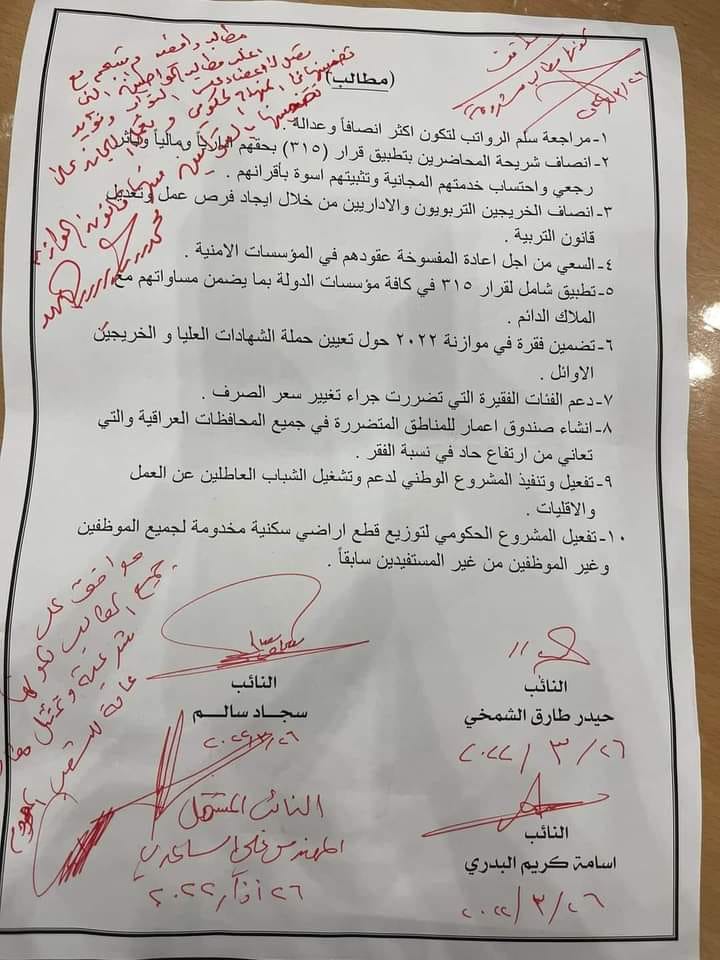 كونها مطالب مشروعة
(مطالب)
١- مراجعة سلم الرواتب لتكون اكثر انصافاً وعدالة .
٢- انصاف شريحة المحاضرين بتطبيق قرار (٣١٥) بحقهم ادارياً ومالياً وباثر
رجعي واحتساب خدمتهم المجانية وتثبيتهم اسوة بأقرانهم .
٣- انصاف الخريجين التربويون والاداريين من خلال ايجاد فرص عمل وتعديل
قانون التربية .
٤- السعي من اجل اعادة المفسوخة عقودهم في المؤسسات الامنية .
٥- تطبيق شامل لقرار ٣١٥ في كافة مؤسسات الدولة بما يضمن مساواتهم مع
الملاك الدائم .
٦- تضمين فقرة في موازنة ٢٠٢٢ حول تعيين حملة الشهادات العليا و الخريجين
الاوائل .
٧- دعم الفئات الفقيرة التي تضررت جراء تغيير سعر الصرف .
٨- انشاء صندوق اعمار للمناطق المتضررة في جميع المحافظات العراقية والتي
تعاني من ارتفاع حاد في نسبة الفقر .
٩- تفعيل وتنفيذ المشروع الوطني لدعم وتشغيل الشباب العاطلين عن العمل
والاقليات .
١٠- تفعيل المشروع الحكومي لتوزيع قطع اراضي سكنية مخدومة لجميع الموظفين
وغير الموظفين من غير المستفيدين سابقاً .
موافق على
جميع المطالب كونها
شرعية وتمثل
عامة للشعب
النائب
حيدر طارق الشمخي
٢٠٢٢/٣/٢٦
النائب
سجاد سالم
٢٠٢٢/٣/٢٦
النائب
اسامة كريم البدري
٢٠٢٢/٣/٢٦
النائب المستقل
المهندس
٢٦ آذار ٢٠٢٢